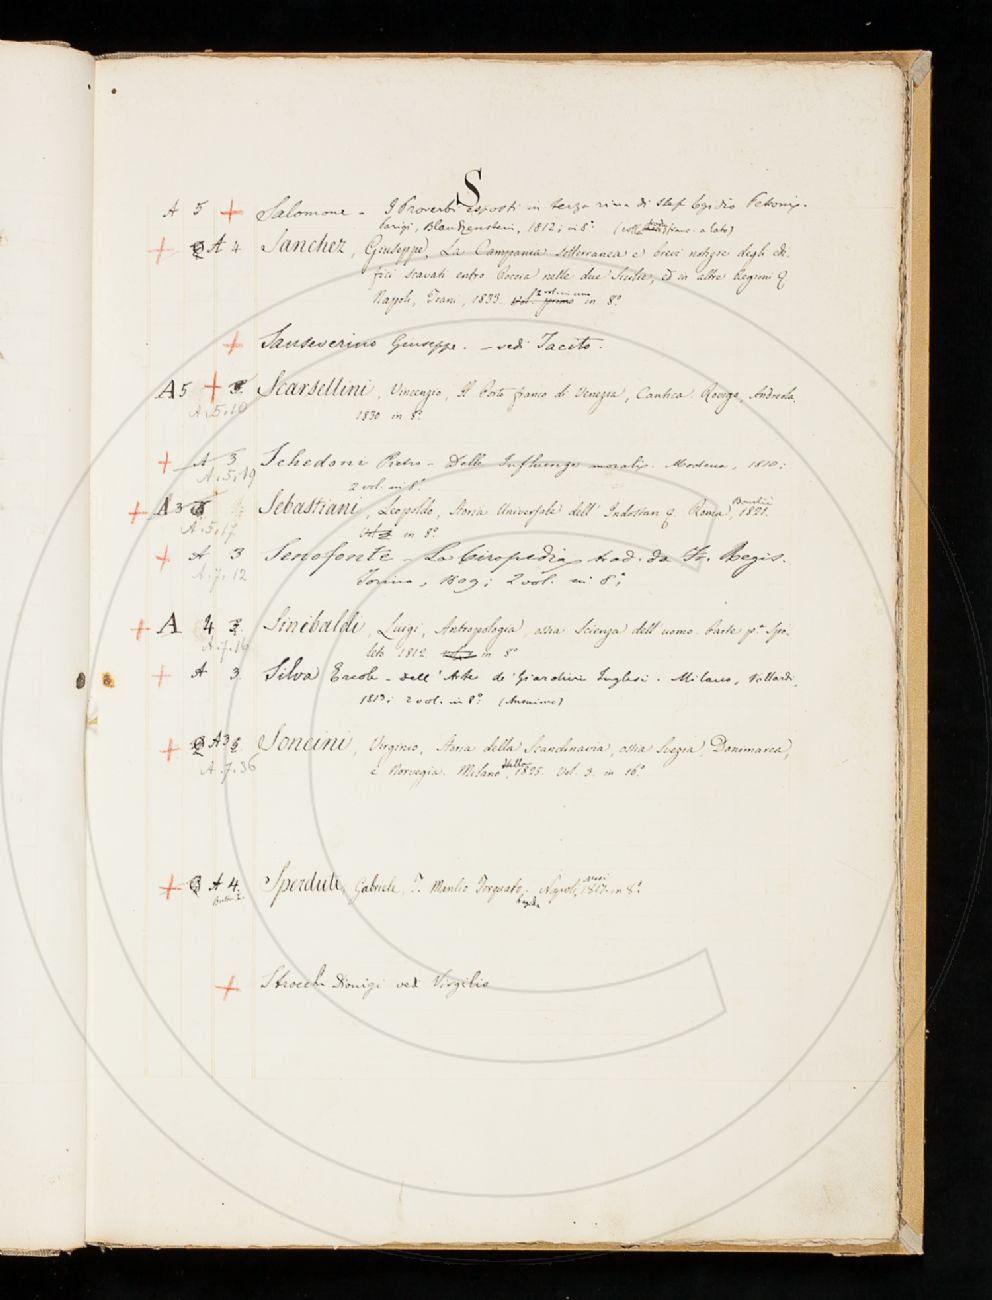 S
A 5 + Salomone - I Proverbi esposti in terza rima di Stef. Egidio Petronj.
Parigi, Blankenstein, 1812; in 8° (col a lato)
+ A 4 Sanchez, Giuseppe, La Campania sotterranea e brevi notizie degli edi-
fici scavati entro Roccia nelle due Sicilie, ed in altre Regioni
Napoli, Trani, 1833. in 8°
+ Sanseverino Giuseppe. - vedi Tacito.
A 5 + 3 Scarsellini, Vincenzo, Il Porto franco di Venezia, Cantica. Rovigo, Andreola.
A.5.10 1830 in 8°
+ A 3 Schedoni Pietro - Delle Influenze morali. Modena, 1810;
A.5.19 2 vol. in 8°
+ A 3 Sebastiani, Leopoldo, Storia Universale dell' Indostan Roma, 1821.
A.5.17 in 8°
+ A 3 Senofonte - La Ciropedia trad. da Fr. Regis.
A.7.12 Torino, 1809; 2 vol. in 8°;
+ A 4 3. Sinibaldi, Luigi, Antropologia, ossia Scienza dell' uomo. Parte pa Spo-
A.7.16 leto 1812. in 8°
+ A 3. Silva Ercole - Dell' Arte de' Giardini Inglesi. Milano, Vallardi,
1813; 2 vol. in 8° (Anonimo)
+ A 3 Soncini, Virginio, Storia della Scandinavia, ossia Svezia, Danimarca,
A.7.36 e Norvegia. Milano, Stella 1825. Vol. 3. in 16°
+ A 4. Sperduti, Gabriele, T. Manlio Torquato, Napoli, 1817. in 8°
+ Strocchi Dionigi vedi Virgilio